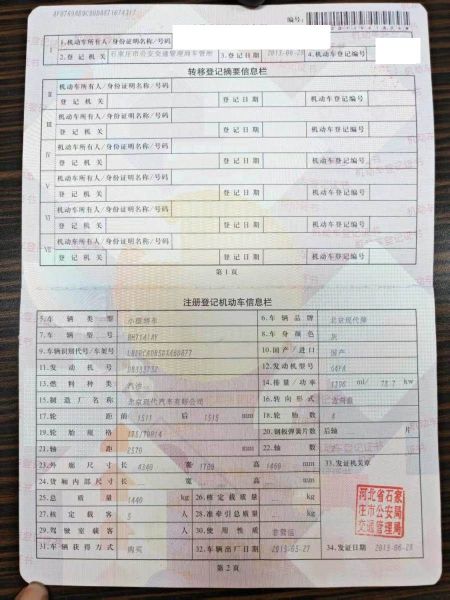 编号:
I 1.机动车所有人/身份证明名称/号码
2.登记机关 石家庄市公安局交通管理局车管所 3.登记日期 2013-06-28 4.机动车登记编号
转移登记摘要信息栏
II 机动车所有人/身份证明名称/号码
登记机关 登记日期 机动车登记编号
III 机动车所有人/身份证明名称/号码
登记机关 登记日期 机动车登记编号
IV 机动车所有人/身份证明名称/号码
登记机关 登记日期 机动车登记编号
V 机动车所有人/身份证明名称/号码
登记机关 登记日期 机动车登记编号
VI 机动车所有人/身份证明名称/号码
登记机关 登记日期 机动车登记编号
VII 机动车所有人/身份证明名称/号码
登记机关 登记日期 机动车登记编号
第1页
注册登记机动车信息栏
5.车辆类型 小型轿车 6.车辆品牌 北京现代牌
7.车辆型号 8.车身颜色 灰
9.车辆识别代号/车架号 10.国产/进口 国产
11.发动机号 12.发动机型号 G4FA
13.燃料种类 汽油 14.排量/功率 1396 ml/ 78.7 kw
15.制造厂名称 北京现代汽车有限公司 16.转向形式
17.轮距 前 1511 后 1515 mm 18.轮胎数 4
19.轮胎规格 175/70R14 20.钢板弹簧片数 后轴 片
21.轴距 2570 mm 22.轴数 2
23.外廓尺寸 长 4340 宽 1700 高 1460 mm 33.发证机关章
24.货厢内部尺寸 长 宽 高 mm
25.总质量 1440 kg 26.核定载质量 kg
27.核定载客 5 人 28.准牵引总质量 kg
29.驾驶室载客 人 30.使用性质 非营运
31.车辆获得方式 购买 32.车辆出厂日期 2013-05-27 34.发证日期 2013-06-28
河北省石家
庄市公安局
交通管理局
第2页